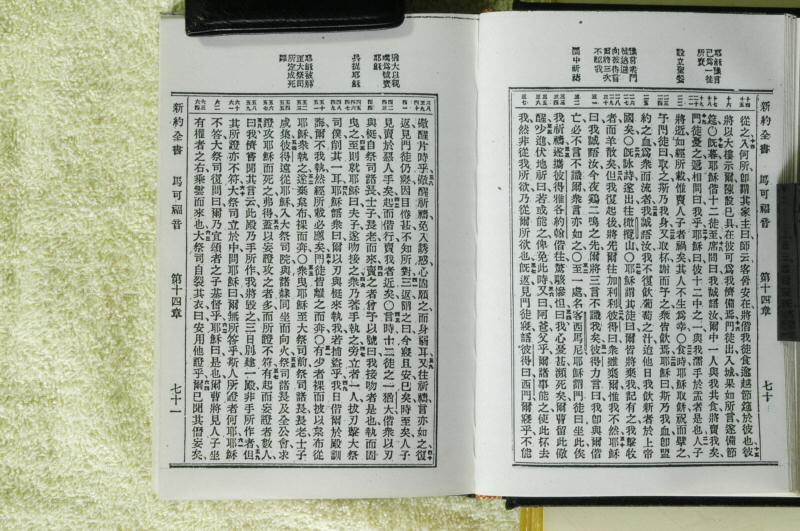 新約全書 馬可福音 第十四章 七十
耶穌預言
己爲一徒
所賣
設立聖餐
預言衆門
徒逃避
向彼得言
爾將三次
不認我
園中祈禱
從之入何所卽謂其家主曰師云客舍安在將偕我徒食逾越節筵於彼也彼
將以大樓示爾陳設已具在彼可爲我儕備焉門徒出入城果如所言遂備節
筵〇旣暮耶穌偕十二徒至席間曰我誠語汝爾中一人與我共食將賣我矣
門徒憂之遞相問曰我乎耶穌曰彼十二中之一與我濡手於盂者是也人子
將逝如經所載惟賣人子者禍矣其人不生爲幸〇食時耶穌取餅祝而擘之
予門徒曰取之斯乃我身又取杯謝而予之衆皆飲焉耶穌曰斯乃我血卽盟
約之血爲衆而流者我誠語汝我不復飲葡萄之汁迨他日我飲新者於上帝
國矣〇旣詠詩遂出往橄欖山〇耶穌謂其徒曰爾皆將棄我記有之我擊牧
者而羊散矣但我復起後將先爾往加利利彼得曰衆雖棄爾惟我不然耶穌
曰我誠語汝今夜雞二鳴之先爾將三言不識我矣彼得力言曰我卽與爾偕
亡必不言不識爾衆言亦如之〇至一處名客西馬尼耶穌謂門徒曰坐此俟
我祈禱遂攜彼得雅各約翰偕往驚駭慘怛曰我心憂甚瀕死矣爾曹留此儆
醒少進伏地祈曰若或能之俾免此時又曰阿爸父乎爾諸事能之使此杯去
我然非從我所欲乃從爾所欲也旣返見門徒寢語彼得曰西門爾寢乎不能
新約全書 馬可福音 第十四章 七十一
猶大以親
嘴爲號賣
耶穌
兵捉耶穌
耶穌被解
至大祭司
所定成死
罪
儆醒片時乎儆醒祈禱免入誘惑心固願之而身弱耳又往祈禱言亦如之復
返見門徒仍寢因目倦甚不知所對三返謂之曰今寢且安已矣時至矣人子
見賣於惡人手矣起而偕行賣我者近矣〇言時十二徒之一猶大偕衆以刃
與梃自祭司諸長士子長老而來賣之者曾予以號曰我接吻者是也執而固
曳之至則就耶穌曰夫子遂吻接之衆乃著手執之旁立者一人拔刃擊大祭
司僕削其一耳耶穌語衆曰爾以刃與梃來執我若捕盜乎我日偕爾於殿訓
誨爾不我執然經所載必應矣門徒皆離之而奔〇有少者裸而披以枲布從
耶穌衆執之遂棄枲布裸而奔〇衆曳耶穌至大祭司前祭司諸長長老士子
咸集彼得遠從耶穌入大祭司院與諸隸同坐而向火祭司諸長及全公會求
證攻耶穌而死之弗得蓋以妄證攻之者多而所證不符有起而妄證者數人
曰我儕嘗聞其言云此殿乃手所作我將毀之三日別建一殿非手所作者但
其所證亦不符大祭司立於中間耶穌曰爾無所答乎斯人所證者何耶耶穌
不答大祭司復問曰爾乃宜頌者之子基督乎耶穌曰是也爾曹將見人子坐
有權者之右乘雲而來也大祭司自裂其衣曰安用他證乎爾已聞其僭妄矣